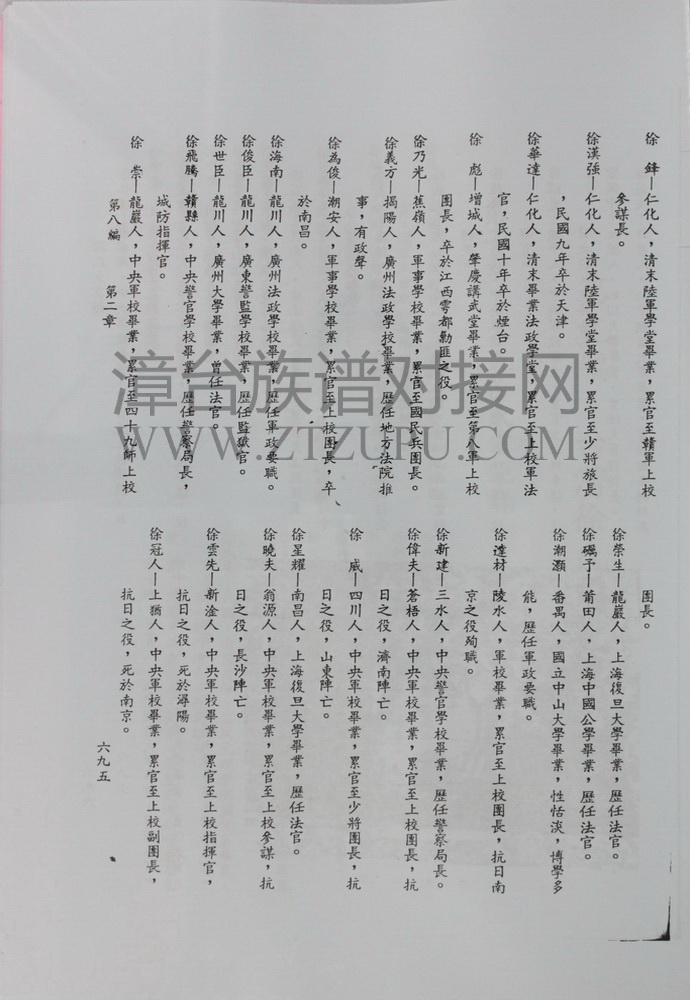 徐　鋒—仁化人，清末陸軍學堂畢業，累官至贛軍上校
參謀長。
徐漢強—仁化人，清末陸軍學堂畢業，累官至少將旅長
，民國九年卒於天津。
徐華達—仁化人，清末畢業法政學堂，累官至上校軍法
官，民國十年卒於煙台
徐　彪—增城人，肇慶講武堂畢業，累官至第八軍上校
團長，卒於江西雩都勦匪之役。
徐乃光—蕉嶺人，軍事學校畢業，累官至國民兵團長。
徐義方—揭陽人，廣州法政學校畢業，歷任地方法院推
事，有政聲。
徐為俊—潮安人，軍事學校畢業，累官至上校團長，卒
於南昌。
徐海南—龍川人，廣州法政學校畢業，歷任軍政要職。
徐俊臣—龍川人，廣東警監學校畢業，歷任監獄官。
徐世臣—龍川人，廣州大學畢業，曾任法官。
徐飛騰—贛縣人，中央警官學校畢業，歷任警察局長，
城防指揮官。
徐　崇—龍巖人，中央軍校畢業，累官至四十九師上校
團長。
徐榮生—龍巖人，上海復旦大學畢業，歷任法官。
徐礪予—莆田人，上海中國公學畢業，歷任法官。
徐潮灝—番禺人，國立中山大學畢業，性恬淡，博學多
能，歷任軍政要職。
徐達材—陵水人，軍校畢業，累官至上校團長，抗日南
京之役殉職。
徐新建—三水人，中央警官學校畢業，歷任警察局長。
徐偉夫—蒼梧人，中央軍校畢業，累官至上校團長，抗
日之役，濟南陣亡。
徐　威—四川人，中央軍校畢業，累官至少將團長，抗
日之役，山東陣亡。
徐星耀—南昌人，上海復旦大學畢業，歷任法官。
徐曉夫—翁源人，中央軍校畢業，累官至上校參謀，抗
日之役，長沙陣亡。
徐雲先—新淦人，中央軍校畢業，累官至上校指揮官，
抗日之役，死於潯陽。
徐冠人—上猶人，中央軍校畢業，累官至上校副團長，
抗日之役，死於南京。
第八編　第二章
六九五
漳台族谱对接网
WWW.ZTZUPU.COM